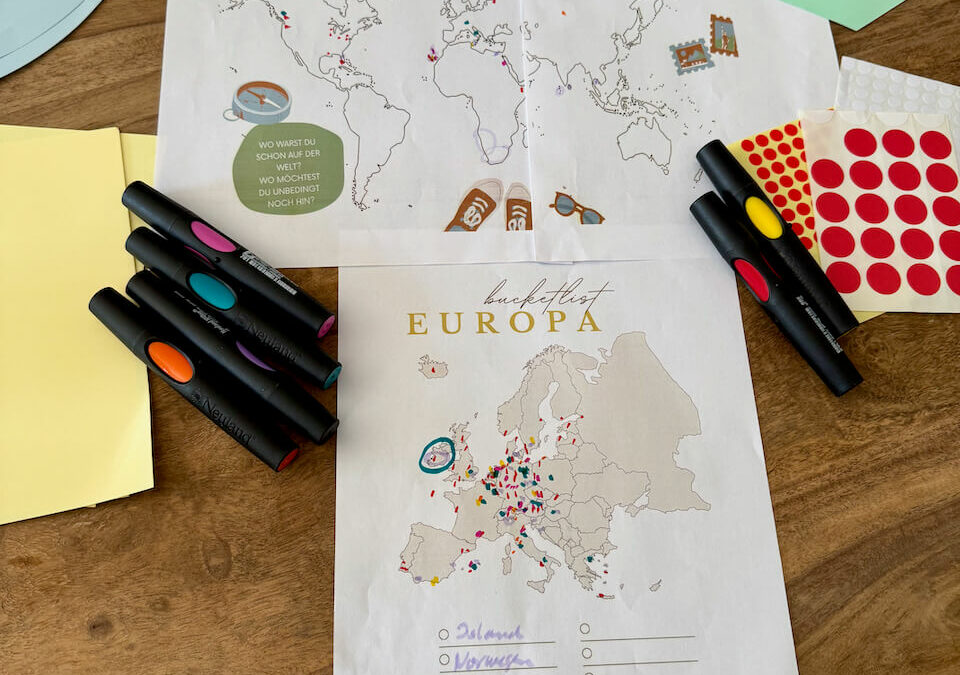 WO WARST DU
SCHON AUF DER
WELT?
WO MÖCHTEST
DU UNBEDINGT
NOCH HIN?
bucketlist
EUROPA
Neuland
Neuland
Island
Norwegen